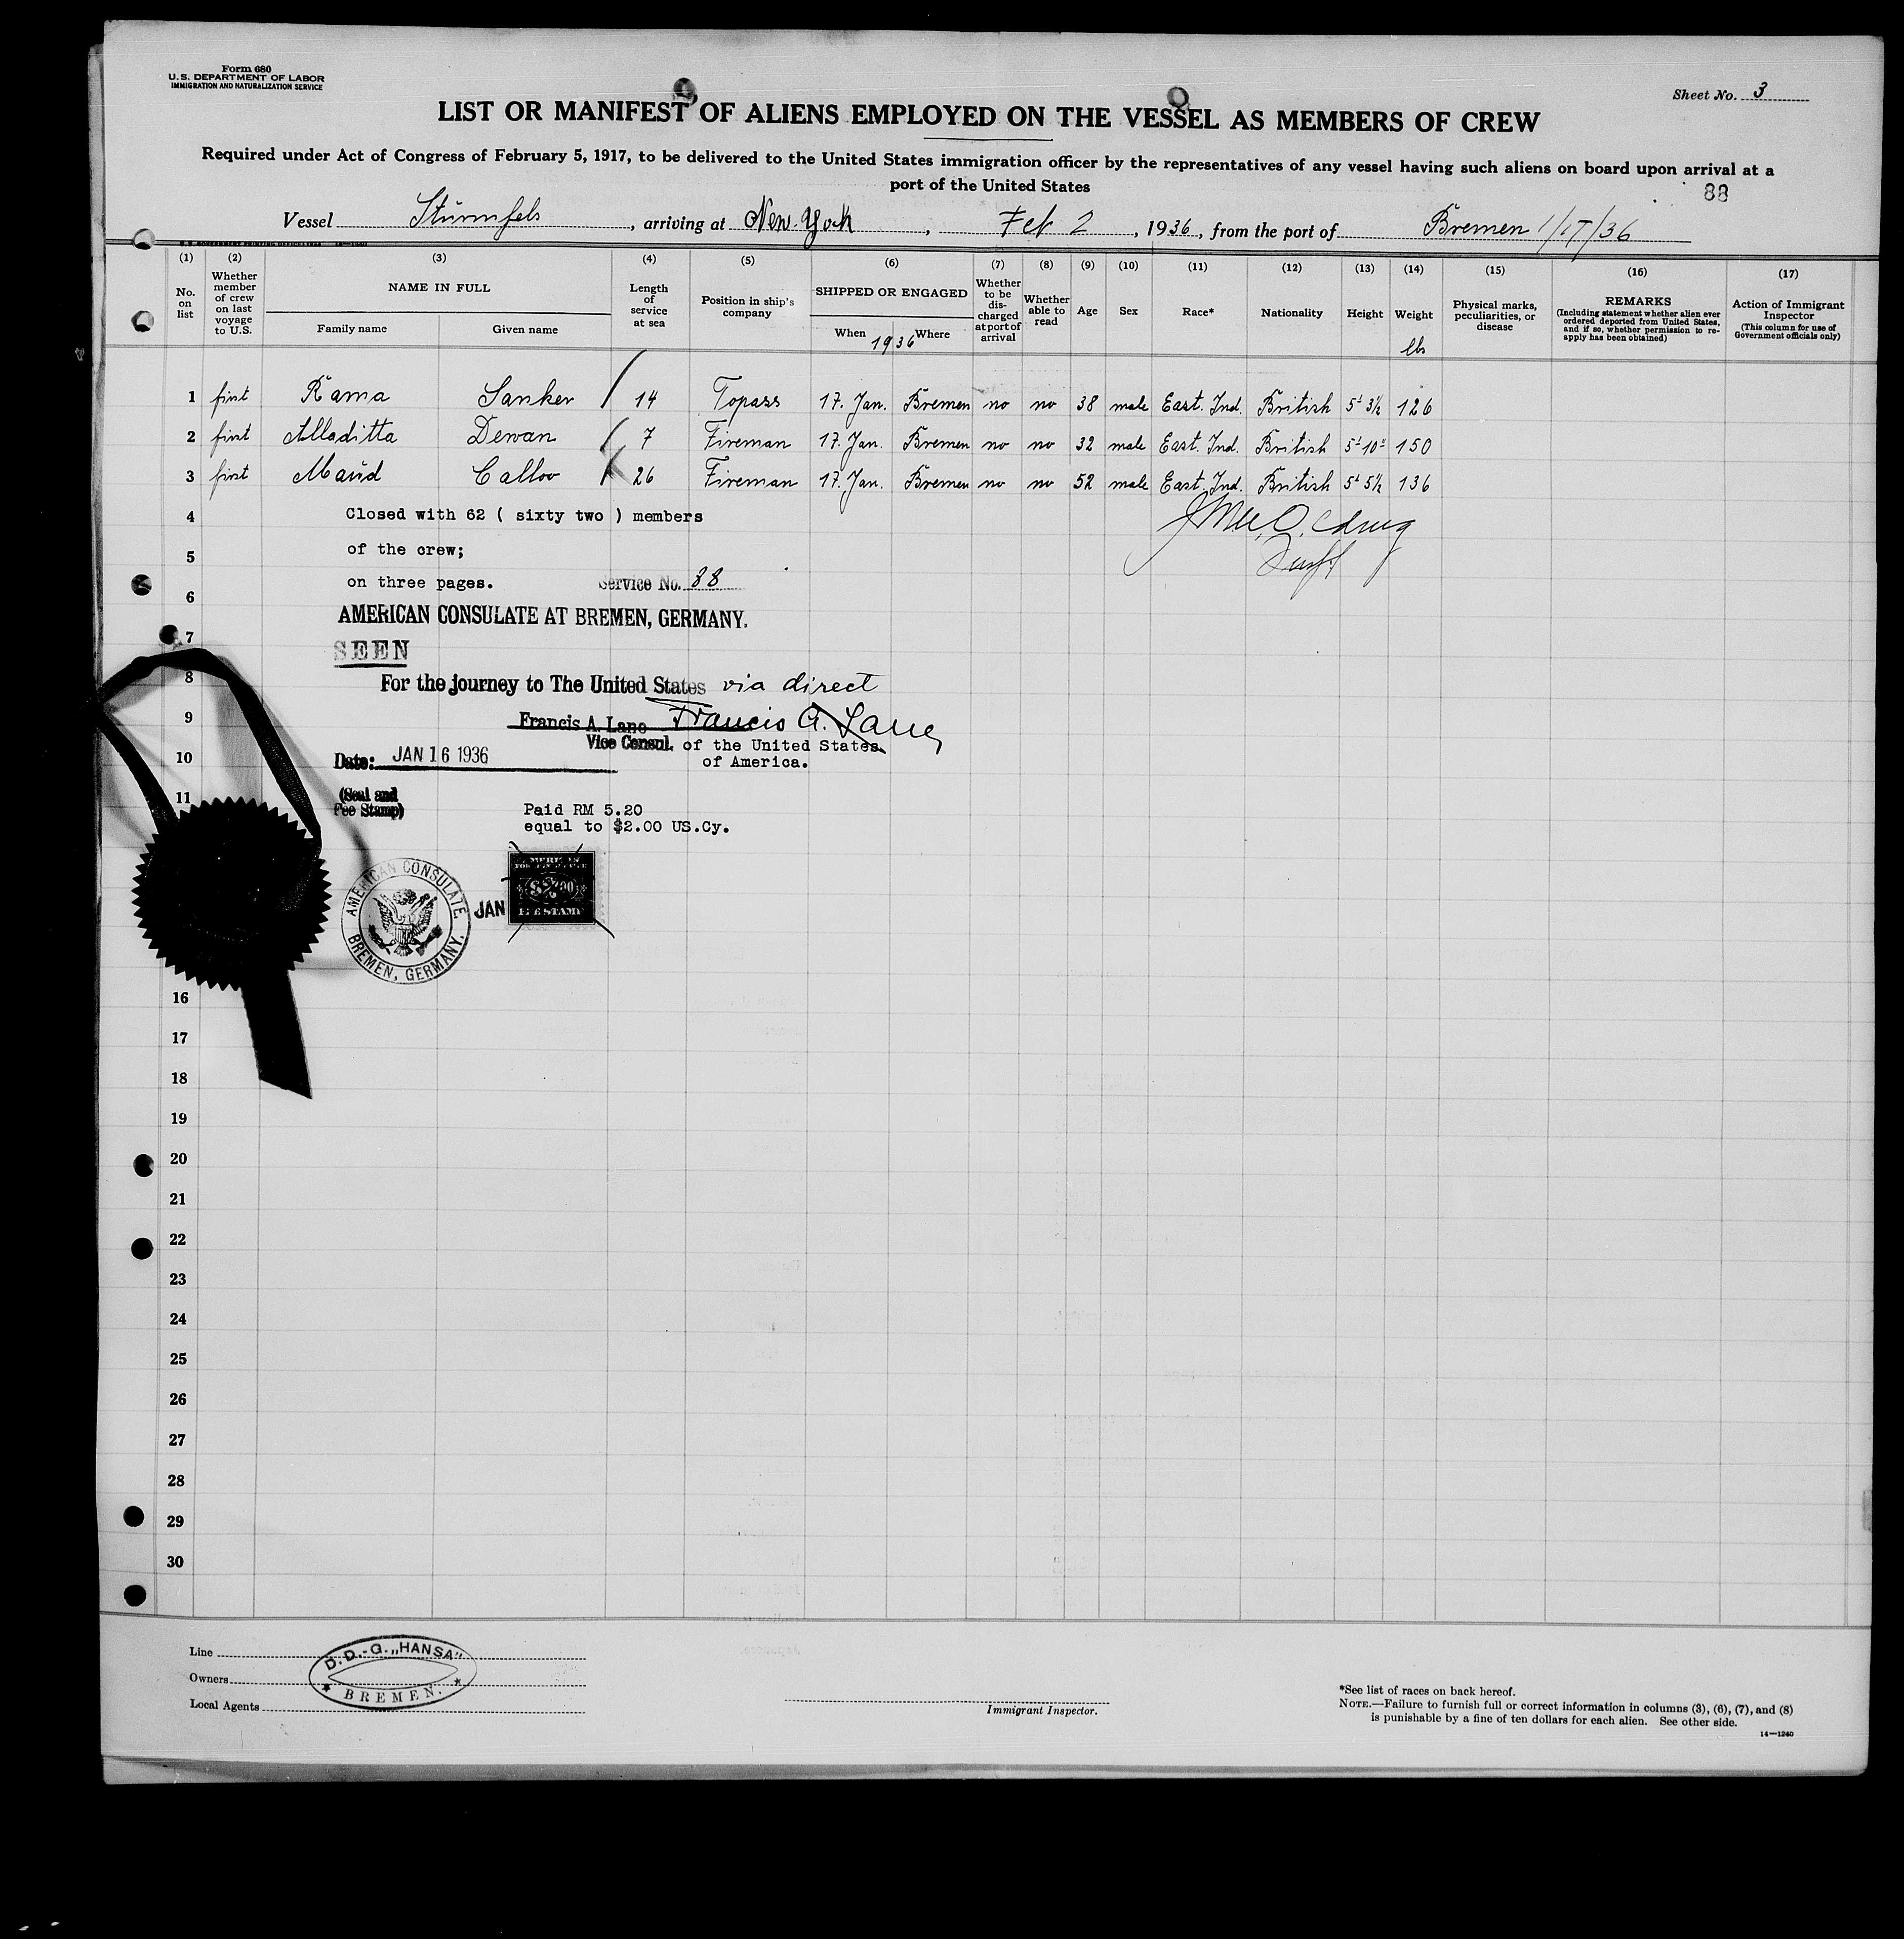 Form 680
U.S. DEPARTMENT OF LABOR
IMMIGRATION AND NATURALIZATION SERVICE
Sheet No. 3
LIST OR MANIFEST OF ALIENS EMPLOYED ON THE VESSEL AS MEMBERS OF CREW
Required under Act of Congress of February 5, 1917, to be delivered to the United States immigration officer by the representatives of any vessel having such aliens on board upon arrival at a
port of the United States
88
Vessel Sturmfels, arriving at New York, Feb 2, 1936, from the port of Bremen 1/17/36
(1) (2) (3) (4) (5) (6) (7) (8) (9) (10) (11) (12) (13) (14) (15) (16) (17)
No. on list
Whether member of crew on last voyage to U.S.
NAME IN FULL
Family name Given name
Length of service at sea
Position in ship's company
SHIPPED OR ENGAGED
When 1936 Where
Whether to be discharged at port of arrival
Whether able to read
Age
Sex
Race*
Nationality
Height
Weight
lbs
Physical marks, peculiarities, or disease
REMARKS
(Including statement whether alien ever ordered deported from United States, and if so, whether permission to re-apply has been obtained)
Action of Immigrant Inspector
(This column for use of Government officials only)
1 first Rama Sanker 14 Topass 17. Jan. Bremen no no 38 male East. Ind. British 5' 3½ 126
2 first Alladitta Dewan 7 Fireman 17. Jan. Bremen no no 32 male East. Ind. British 5' 10" 150
3 first Maud Calloo 26 Fireman 17. Jan. Bremen no no 52 male East. Ind. British 5' 5½ 136
4 Closed with 62 ( sixty two ) members
5 of the crew;
on three pages. Service No. 88
6
AMERICAN CONSULATE AT BREMEN, GERMANY.
7
SEEN
8 For the journey to The United States via direct
9 Francis A. Lane Francis A. Lane
Vice Consul. of the United States
10 Date: JAN 16 1936 of America.
11 (Seal and
Fee Stamp)
Paid RM 5.20
equal to $2.00 US.Cy.
AMERICAN CONSULATE, BREMEN, GERMANY.
JAN
FEE STAMP
16
17
18
19
20
21
22
23
24
25
26
27
28
29
30
Line
Owners
Local Agents
D.D.-G. „HANSA" BREMEN.
Immigrant Inspector.
*See list of races on back hereof.
NOTE.—Failure to furnish full or correct information in columns (3), (6), (7), and (8)
is punishable by a fine of ten dollars for each alien. See other side.
14—1240